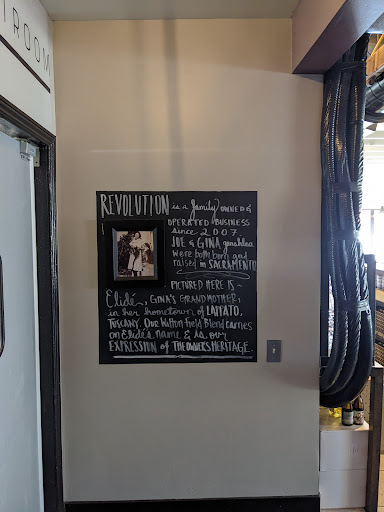 TROOM
REVOLUTION is a family OWNED &
OPERATED BUSINESS
since 2007
JOE & GINA genshlea
were both born and
raised in SACRAMENTO
PICTURED HERE IS ~
Elidé, GINA'S GRANDMOTHER,
in her hometown of LAIATO,
TUSCANY. Our Walton-field Blend carries
on Elidé's name & is our
EXPRESSION of THE OWNERS HERITAGE.